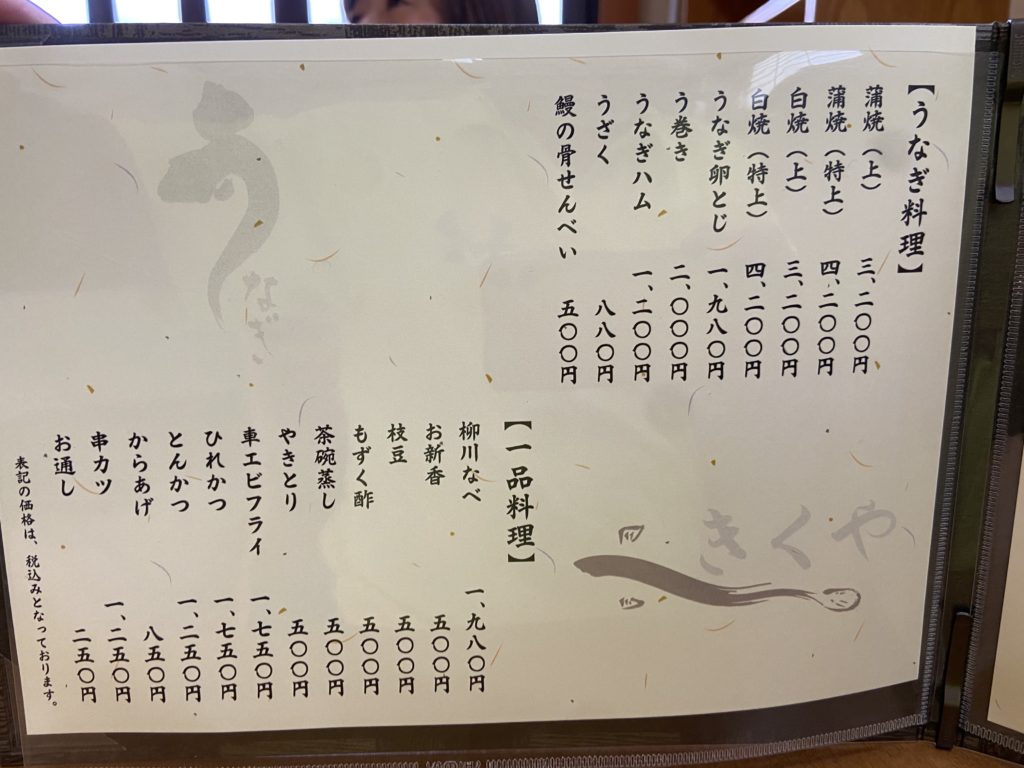 【うなぎ料理】
蒲焼（上） 三、二〇〇円
蒲焼（特上） 四、二〇〇円
白焼（上） 三、二〇〇円
白焼（特上） 四、二〇〇円
うなぎ卵とじ 一、九八〇円
う巻き 二、〇〇〇円
うなぎハム 一、二〇〇円
うざく 八八〇円
鰻の骨せんべい 五〇〇円
きくや
【一品料理】
柳川なべ 一、九八〇円
お新香 五〇〇円
枝豆 五〇〇円
もずく酢 五〇〇円
茶碗蒸し 五〇〇円
やきとり 五〇〇円
車エビフライ 一、七五〇円
ひれかつ 一、七五〇円
とんかつ 一、二五〇円
からあげ 八五〇円
串カツ 一、二五〇円
お通し 二五〇円
表記の価格は、税込みとなっております。
うなぎ